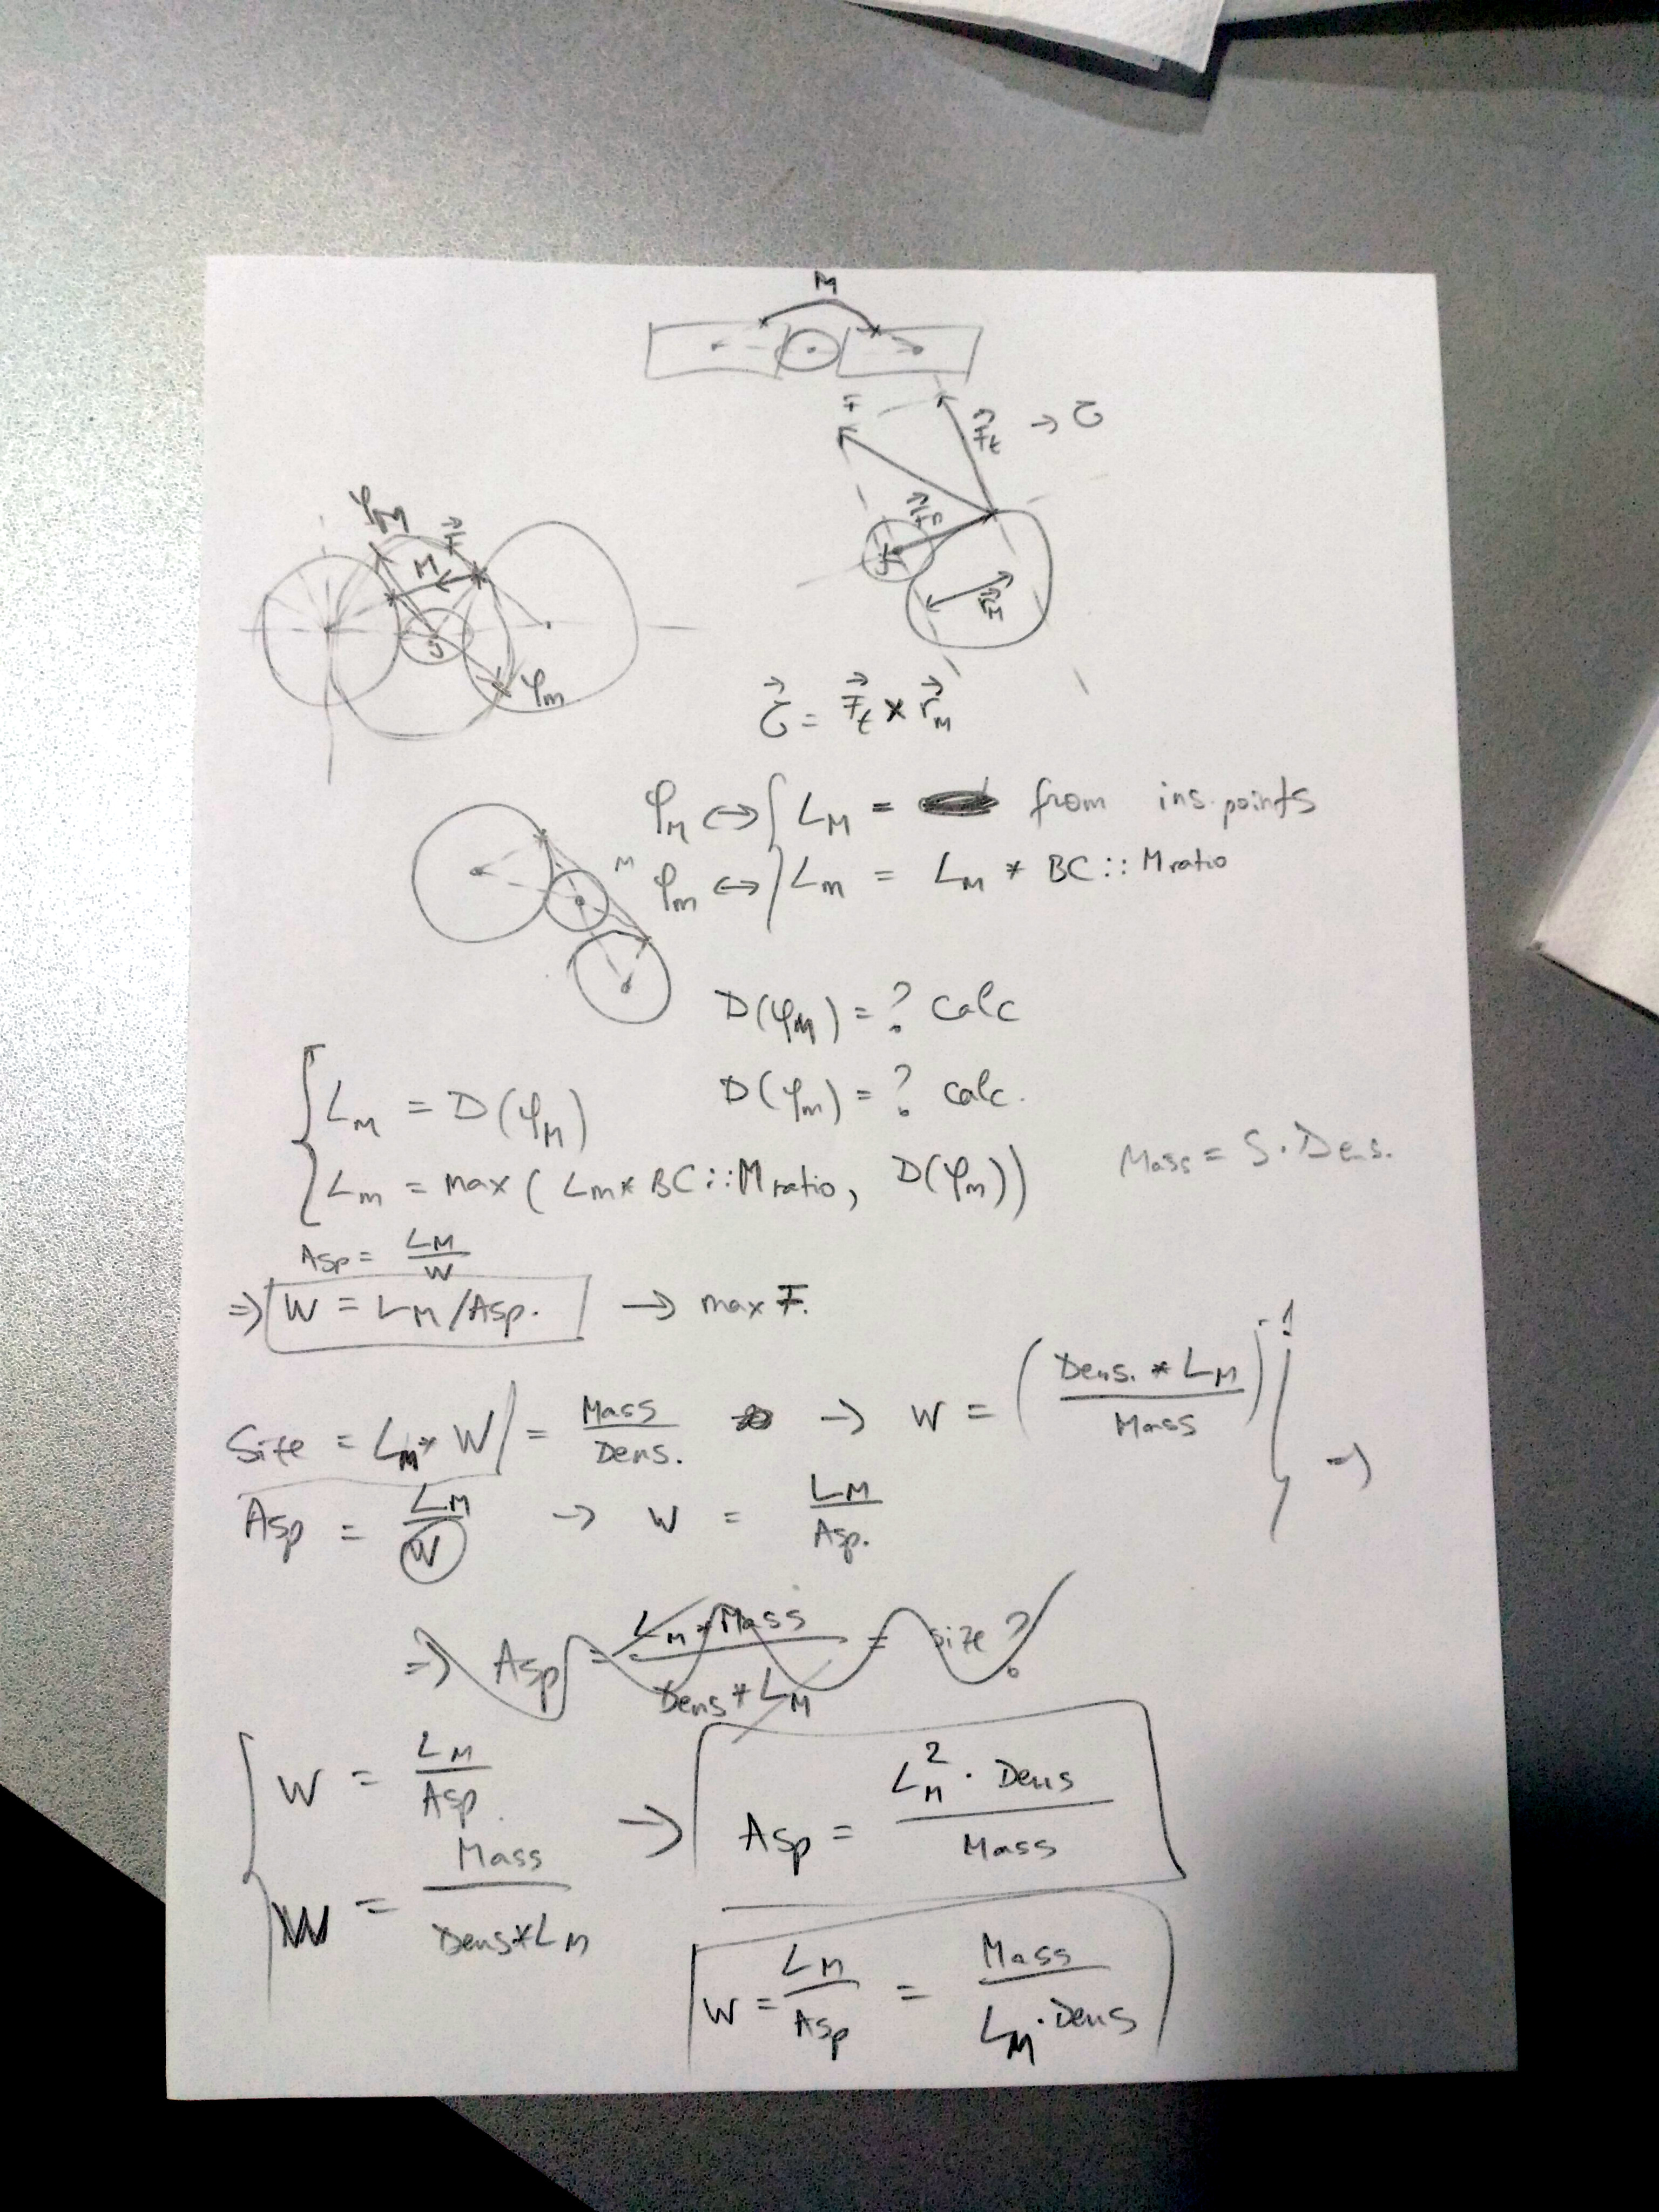 M
F
F⃗t → τ
F⃗n
J
r⃗M
φM
F⃗
M
J
φm
τ⃗ = F⃗t × r⃗M
φM ⇔ { LM = from ins. points
M
φm ⇔ { Lm = LM * BC::Mratio
D(φM) = ? calc
D(φm) = ? calc.
{ LM = D(φM)
Lm = max( LM * BC::Mratio, D(φm))
Mass = S · Dens.
Asp = LM / W
⇒ W = LM / Asp. → max F.
Size = LM * W = Mass / Dens. → W = (Dens. * LM / Mass)^-1 } →
Asp = LM / W → W = LM / Asp.
⇒ Asp = LM * Mass / Dens * LM = size?
{ W = LM / Asp. → Asp = LM² · Dens / Mass
W = Mass / Dens * LM
W = LM / Asp = Mass / LM · Dens